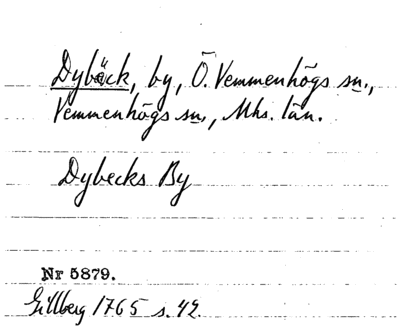 Dybäck, by, Ö. Vemmenhögs sn.,
Vemmenhögs sn., Mhs. län.
Dybecks By
Nr 5879.
Gillberg 1765 s. 42.